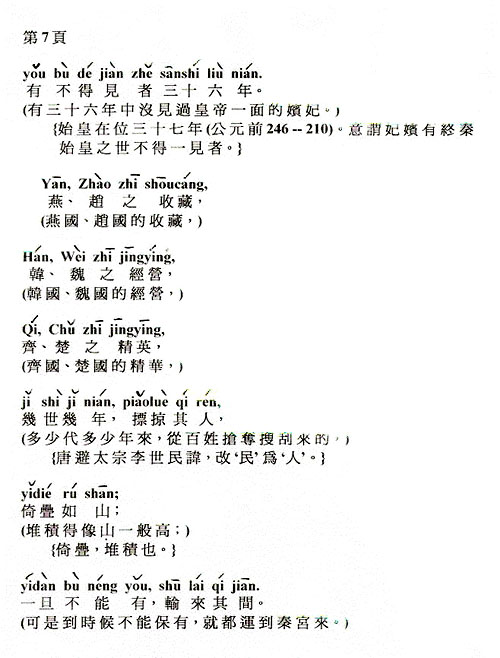 第7頁
yǒu bù dé jiàn zhě sānshí liù nián.
有不得見者三十六年。
(有三十六年中沒見過皇帝一面的嬪妃。)
{始皇在位三十七年(公元前246 -- 210)。意謂妃嬪有終秦
始皇之世不得一見者。}
Yān, Zhào zhī shōucáng,
燕、趙之收藏，
(燕國、趙國的收藏，)
Hán, Wèi zhī jīngyíng,
韓、魏之經營，
(韓國、魏國的經營，)
Qí, Chǔ zhī jīngyīng,
齊、楚之精英，
(齊國、楚國的精華，)
jǐ shì jǐ nián, piāolüè qí rén,
幾世幾年，摽掠其人，
(多少代多少年來，從百姓搶奪搜刮來的，)
{唐避太宗李世民諱，改‘民’爲‘人’。}
yǐdié rú shān;
倚疊如山；
(堆積得像山一般高；)
{倚疊，堆積也。}
yídàn bù néng yǒu, shū lái qí jiān.
一旦不能有，輸來其間。
(可是到時候不能保有，就都運到秦宮來。)